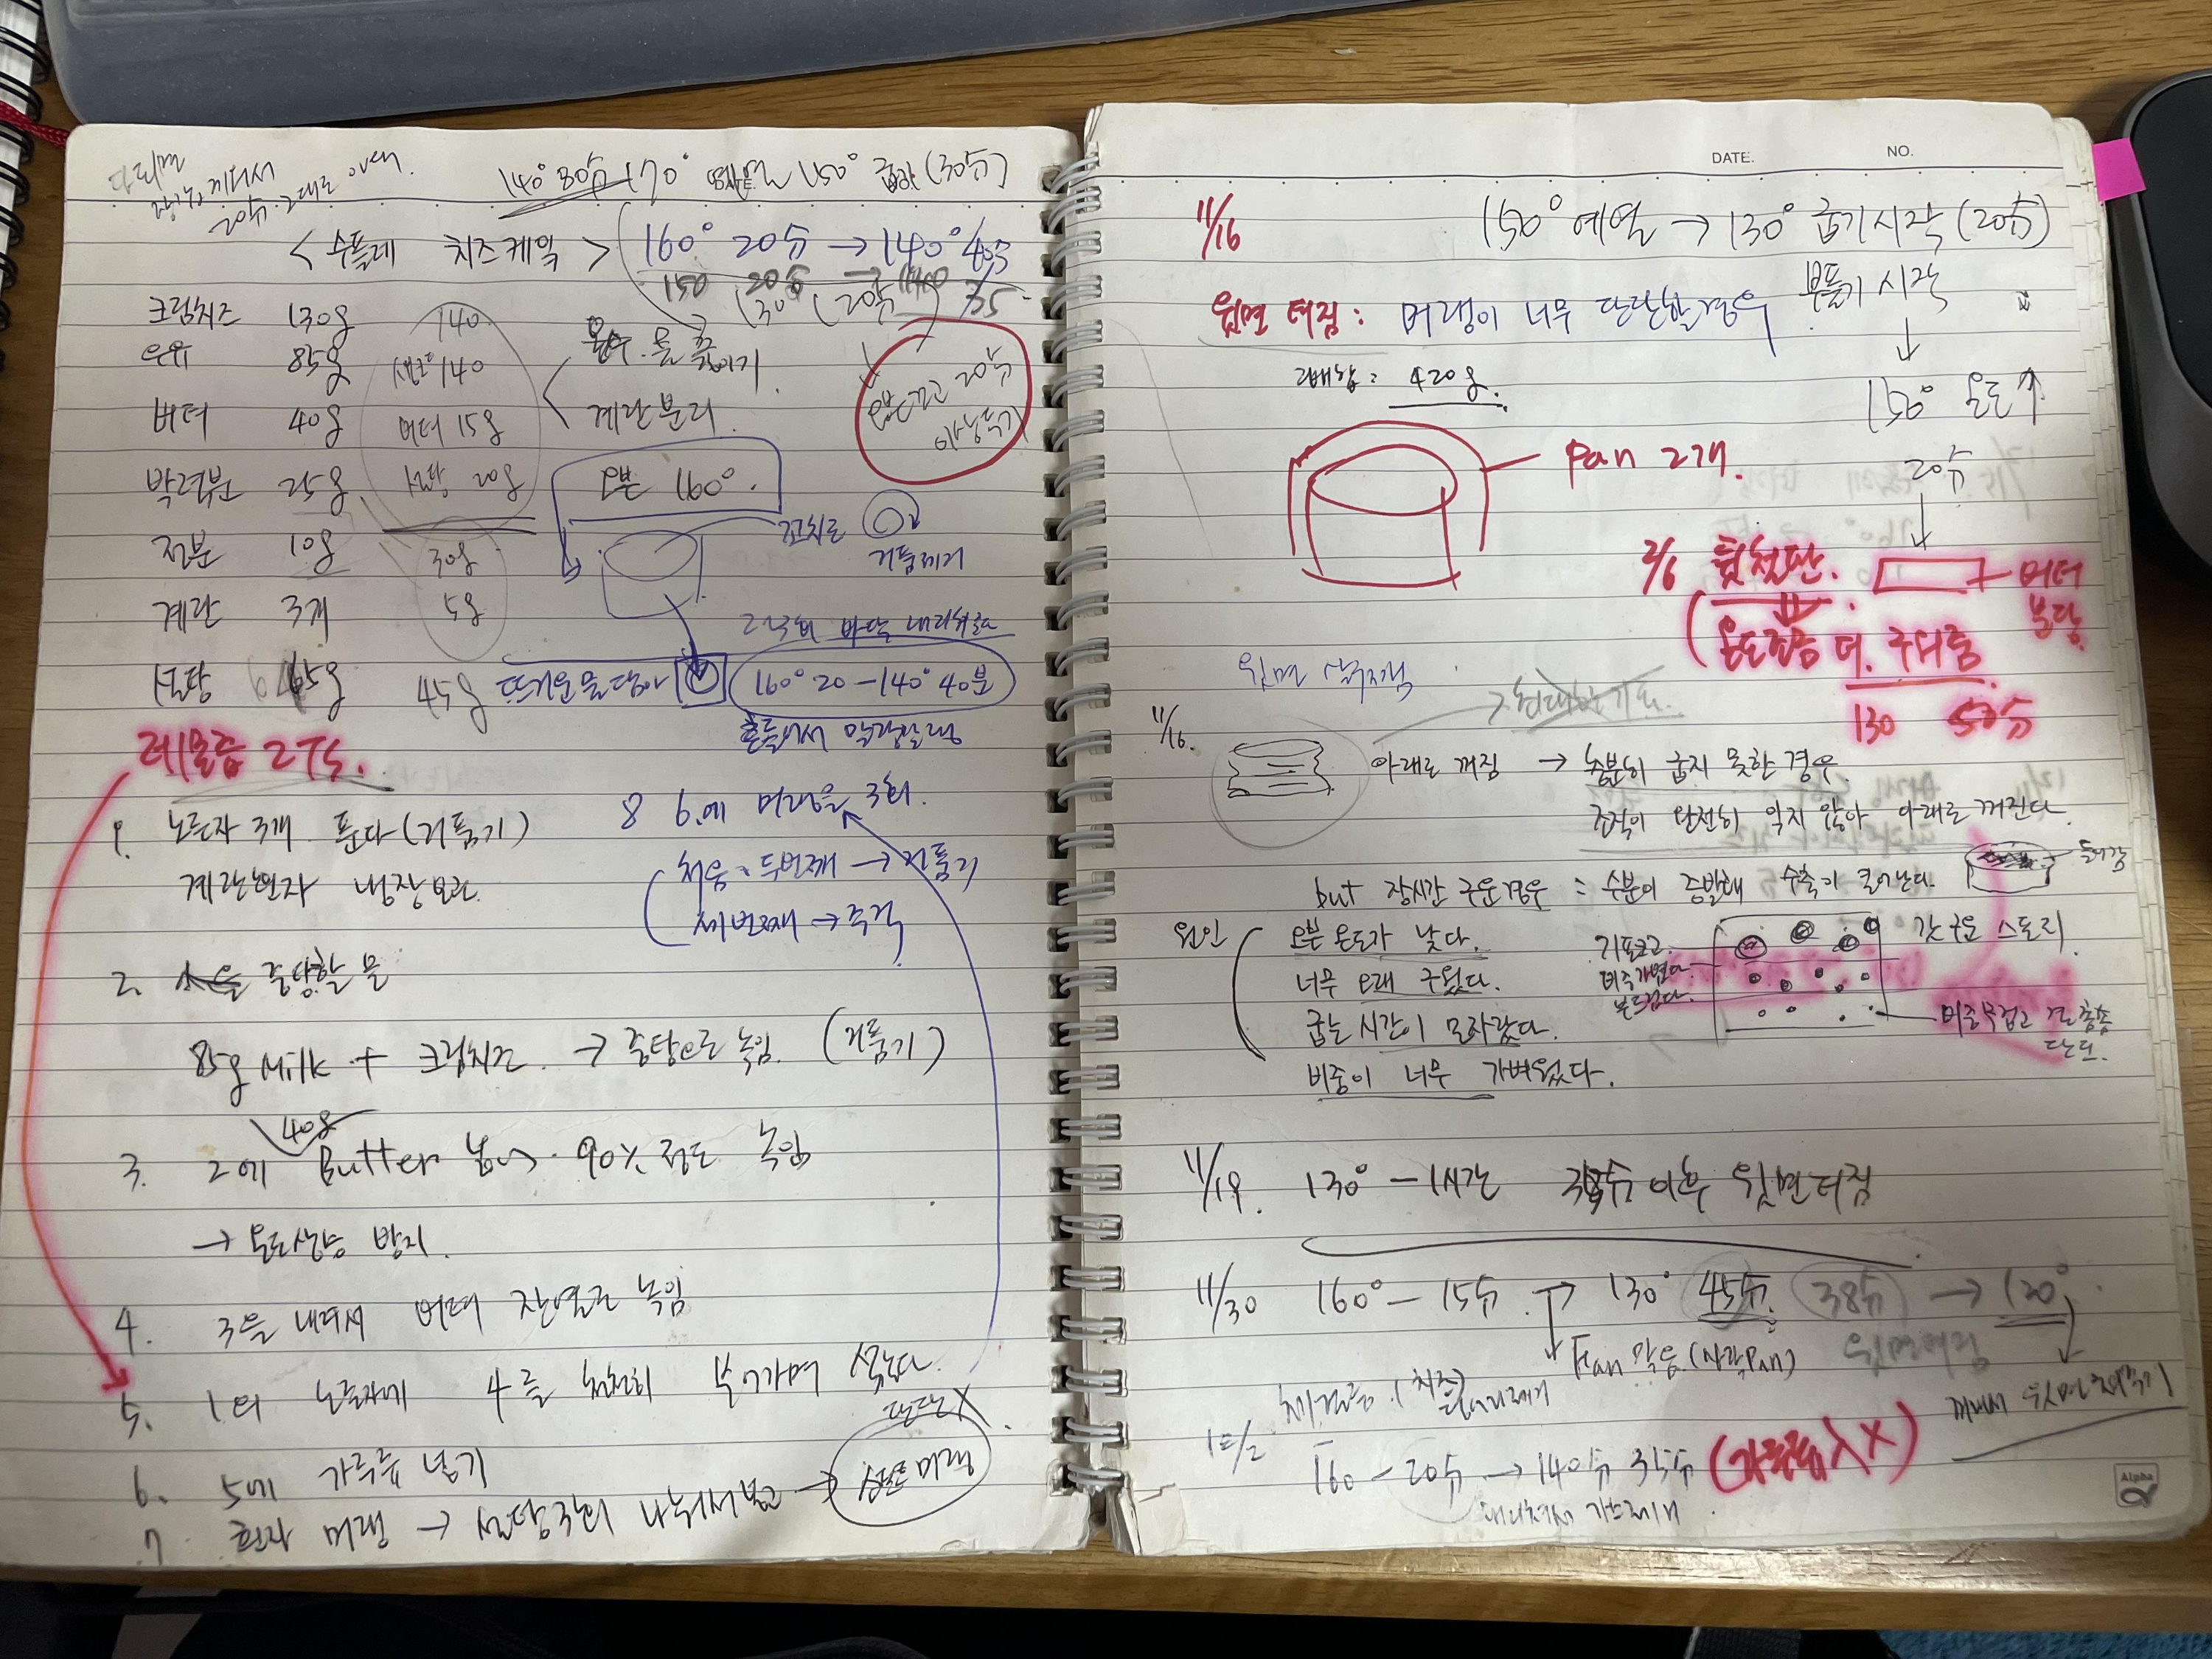 20分 그대로 oven.
140° 30分 170° 예열 150° 굽기 (30分)
< 수플레 치즈케잌 >
160° 20分 → 140° 40分
150 20分 → 140 35
130 (20分)
크림치즈 130g 140
우유 85g 생크 140
버터 40g 버터 15g
박력분 25g 설탕 20g
전분 10g 30g
계란 3개 5g
설탕 65g 45g
온수. 물 끓이기
계란분리
오븐끄고 20分
이상두기
오븐 160°.
꼬치로
거품제거
2~3회 바닥 내리쳐준다
뜨거운물담아
160° 20 - 140° 40분
흔들어서 말랑말랑
레몬즙 2Ts.
1. 노른자 3개 푼다 (거품기)
계란흰자 냉장보관
2. 중탕할 물
85g Milk + 크림치즈 → 중탕으로 녹임. (거품기)
40g
3. 2에 Butter 넣어. 90% 정도 녹임
→ 온도상승 방지.
4. 3을 내려서 버터 잔열로 녹임
5. 1의 노른자에 4를 천천히 부어가며 섞는다.
단단X
6. 5에 가루류 넣기
7 흰자 머랭 → 설탕 3회 나눠서 넣고 → 머랭
8 6.에 머랭을 3회.
처음. 두번째 → 거품기
세번째 → 주걱
DATE. NO.
11/16 150° 예열 → 130° 굽기시작 (20分)
부풀기 시작
윗면 터짐 : 머랭이 너무 단단할경우
2배합 : 420g.
150° 온도↑
20分
Pan 2개.
2/6 윗첫단.
버터
온도조금 더. 구워줌
130 50分
윗면
11/16.
아래로 꺼짐 → 충분히 굽지 못한 경우.
조직이 완전히 익지 않아 아래로 꺼진다.
but 장시간 구운경우 : 수분이 증발해 수축이 일어난다.
원인 오븐 온도가 낮다.
너무 오래 구웠다.
굽는 시간이 모자랐다.
비중이 너무 가벼웠다.
기포크고.
비중가볍다.
부드럽다.
갓 구운 스토리.
비중무겁고
11/19. 130° - 1시간 38分 이후 윗면터짐
11/30 160° - 15分 → 130° 45分. 38分 → 120°.
Fan 막음 (사각Pan) 윗면터짐
12/2 160 - 20分 → 140分 35分
Alpha